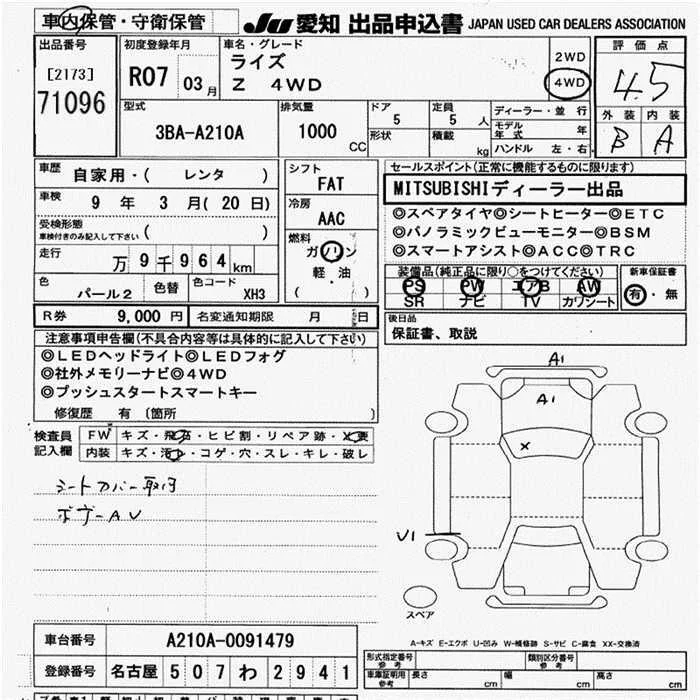 車内保管・守衛保管
JU 愛知 出品申込書 JAPAN USED CAR DEALERS ASSOCIATION
出品番号 [2173] 71096
初度登録年月 R07 03月
車名・グレード ライズ Z 4WD
2WD 4WD
評価点 4.5
外装 内装 B A
型式 3BA-A210A
排気量 1000 CC
ドア 5 形状
定員 5人 積載 kg
ディーラー・並行
モデル年式 年
ハンドル 左・右
車歴 自家用・( レンタ )
車検 9年 3月(20日)
受検形態 車検付きのみ記入して下さい ( )
走行 万9千964km
色 パール2 色替 色コード XH3
シフト FAT
冷房 AAC
燃料 ガソリン 軽・油 ( )
セールスポイント(正常に機能するものに限ります)
MITSUBISHIディーラー出品
◎スペアタイヤ◎シートヒーター◎ETC
◎パノラミックビューモニター◎BSM
◎スマートアシスト◎ACC◎TRC
装備品(純正品に限り○をつけてください)
PS PW エアB AW
SR ナビ TV カワシート
新車保証書 有・無
R券 9,000円 名変通知期限 月 日
後日品
保証書、取説
注意事項申告欄(不具合内容等は具体的に記入して下さい)
◎LEDヘッドライト◎LEDフォグ
◎社外メモリーナビ◎4WD
◎プッシュスタートスマートキー
修復歴 有 〔箇所 〕
検査員記入欄
FW キズ・飛石・ヒビ割・リペア跡・X要
内装 キズ・汚レ・コゲ・穴・スレ・キレ・破レ
シートカバー取付
ボデーAU
A1
A1
X
U1
スペア
A-キズ E-エクボ U-凹み W-補修跡 S-サビ C-腐食 XX-交換済
車台番号 A210A-0091479
登録番号 名古屋 507 わ 2941
形式指定番号 参考 類別区分番号 参考
車庫証明用 参考 長さ cm 幅 cm 高さ cm